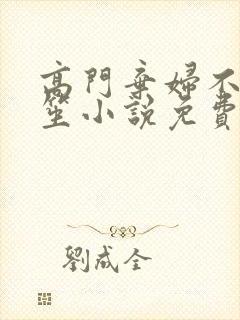 高門棄婦不
笙小說免費
劉成全